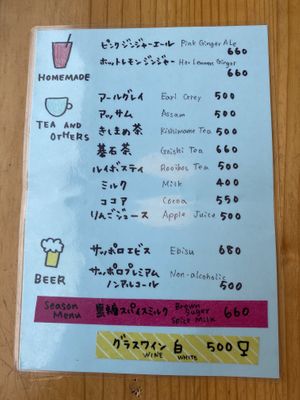 ピンクジンジャーエール Pink Ginger Ale 660
ホットレモンジンジャー Hot Lemon Ginger 660
HOMEMADE
アールグレイ Earl Grey 500
アッサム Assam 500
きしまめ茶 Kishimame Tea 500
碁石茶 Goishi Tea 660
ルイボスティ Rooibos Tea 500
ミルク Milk 400
ココア Cocoa 550
りんごジュース Apple Juice 500
TEA AND OTHERS
サッポロエビス Ebisu 680
サッポロプレミアム ノンアルコール Non-alcoholic 500
BEER
Season Menu 黒糖スパイスミルク Brown Suger Spice Milk 660
グラスワイン WINE 白 WHITE 500